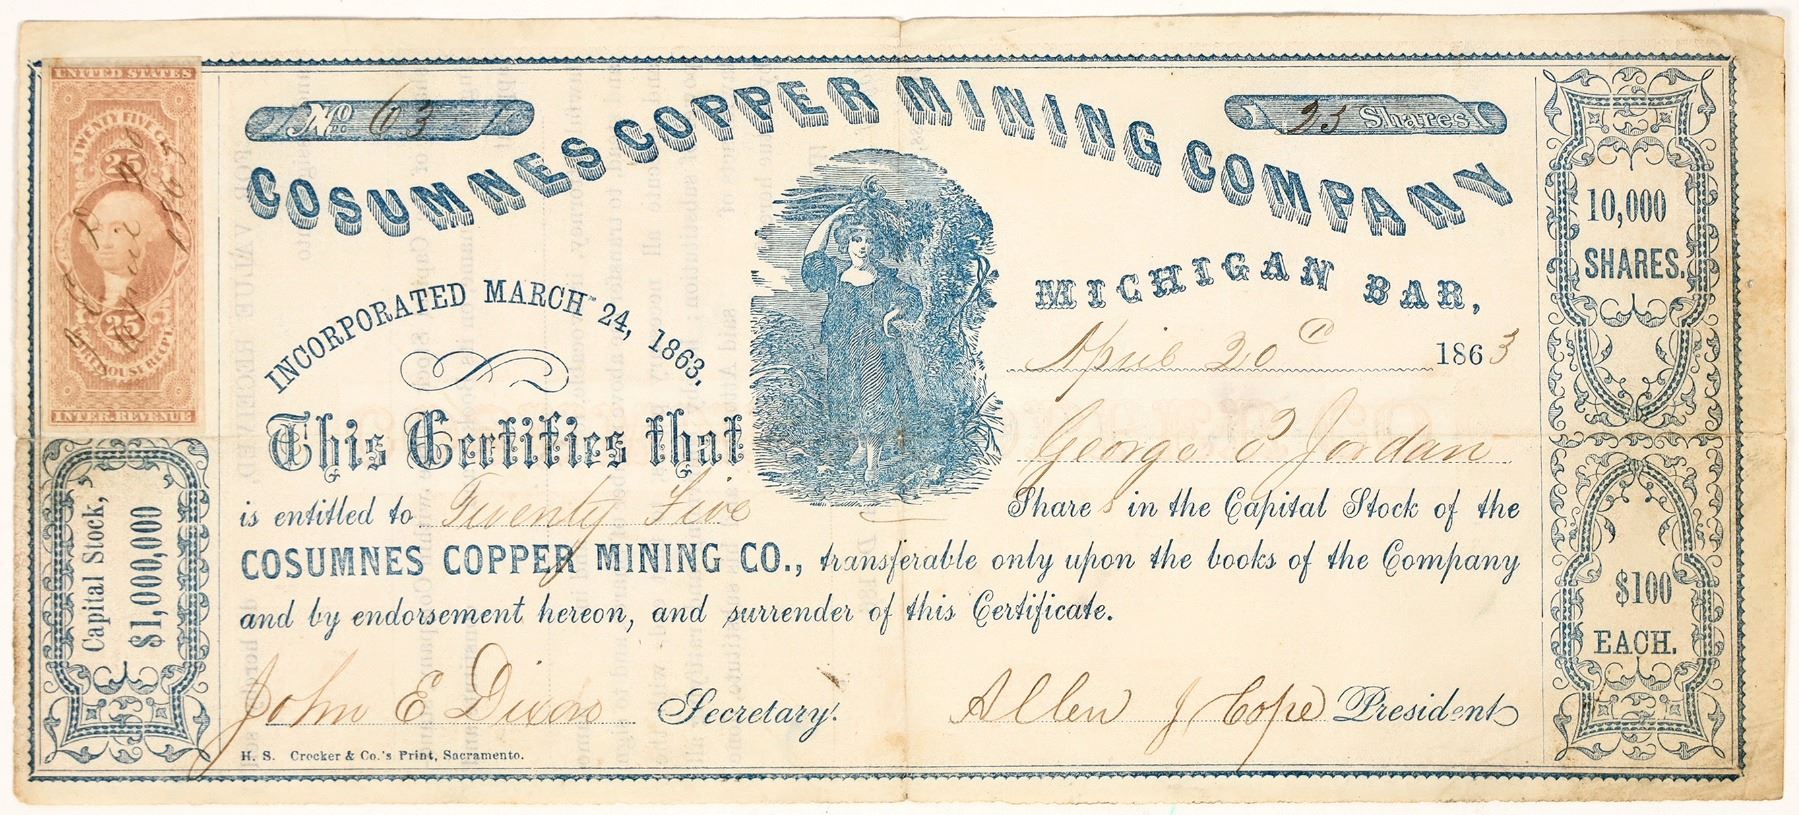 UNITED STATES
TWENTY FIVE CTS
25
25
INTER. REVENUE
No 63
25 Shares
COSUMNES COPPER MINING COMPANY
INCORPORATED MARCH 24, 1863.
MICHIGAN BAR,
April 20 1863
This Certifies that George P Jordan
is entitled to Twenty Five Shares in the Capital Stock of the
COSUMNES COPPER MINING CO., transferable only upon the books of the Company
and by endorsement hereon, and surrender of this Certificate.
John E Dixon Secretary.
Allen J Cope President
H. S. Crocker & Co.'s Print, Sacramento.
Capital Stock,
$1,000,000
10,000
SHARES.
$100
EACH.